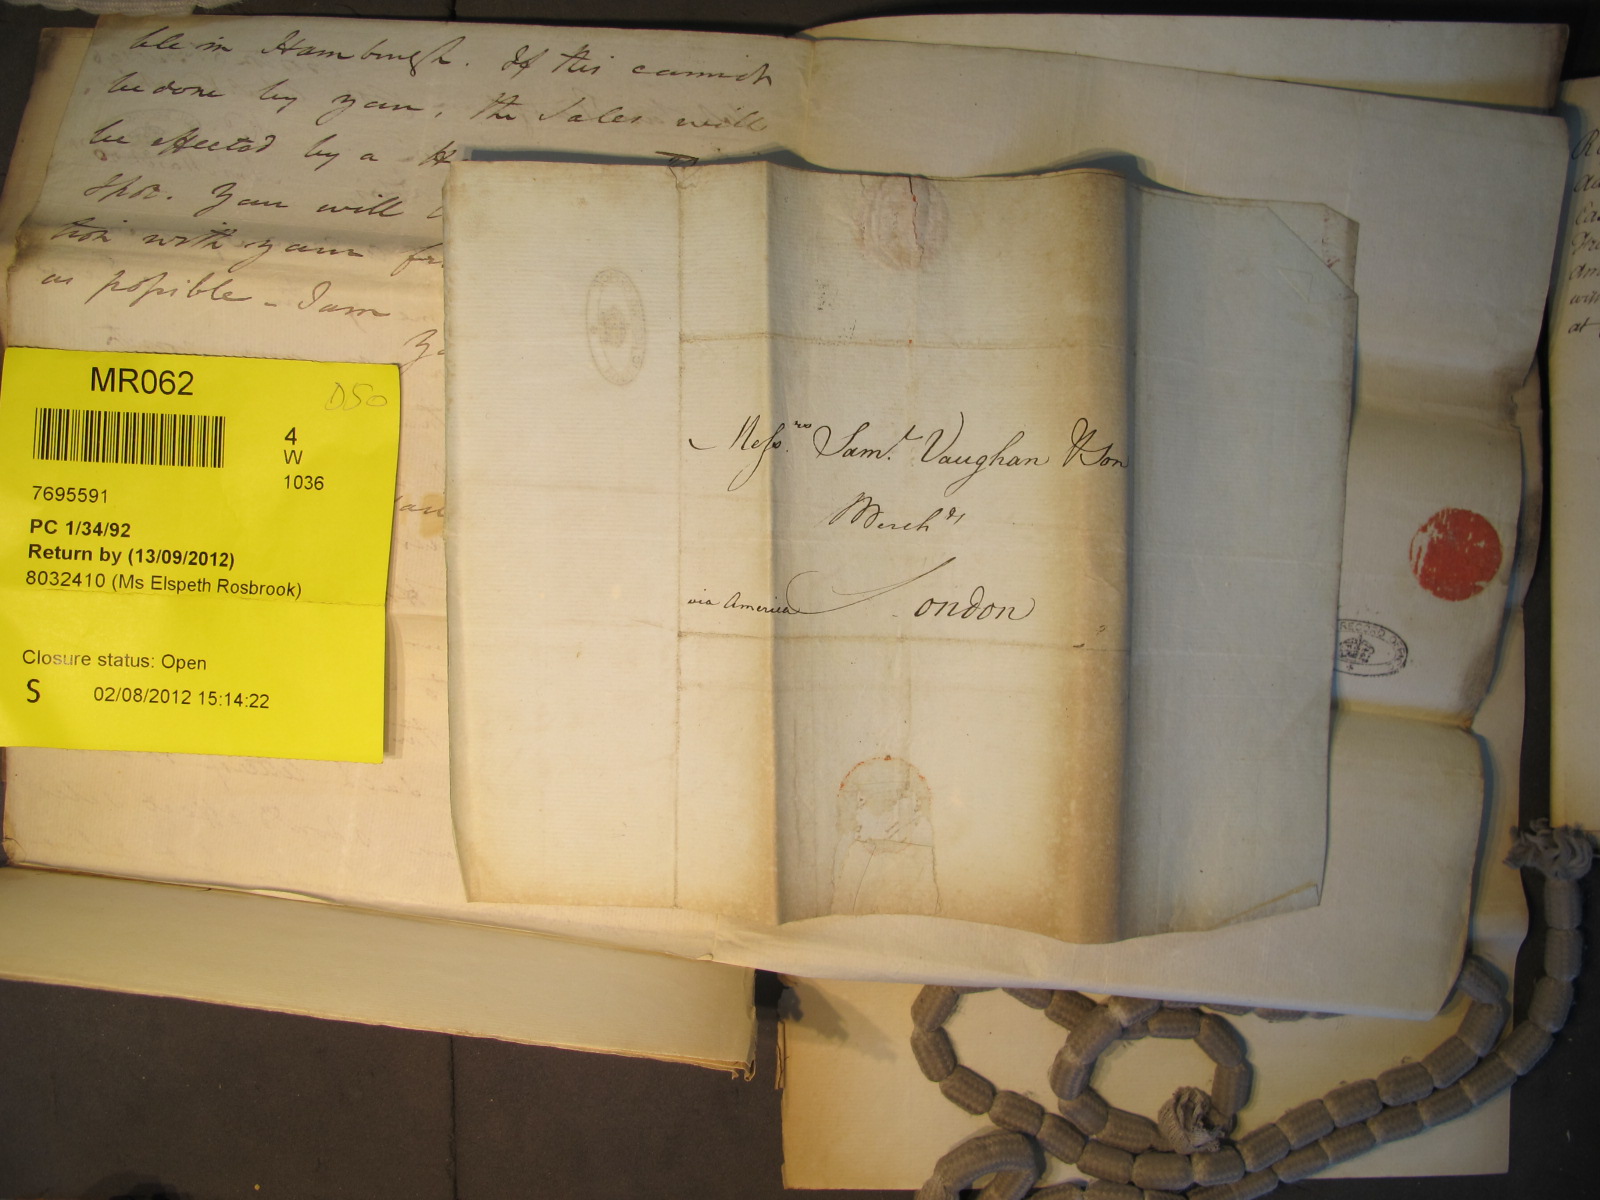 ble in Hamburgh. If this cannot
be done by your, the Sales will
be effected by a H
spot. You will
tion with your fr
as possible - I am
Yo
MR062
D50
4
W
1036
7695591
PC 1/34/92
Return by (13/09/2012)
8032410 (Ms Elspeth Rosbrook)
Closure status: Open
S 02/08/2012 15:14:22
Messrs. Saml. Vaughan & Son
Merchts
via America London
at